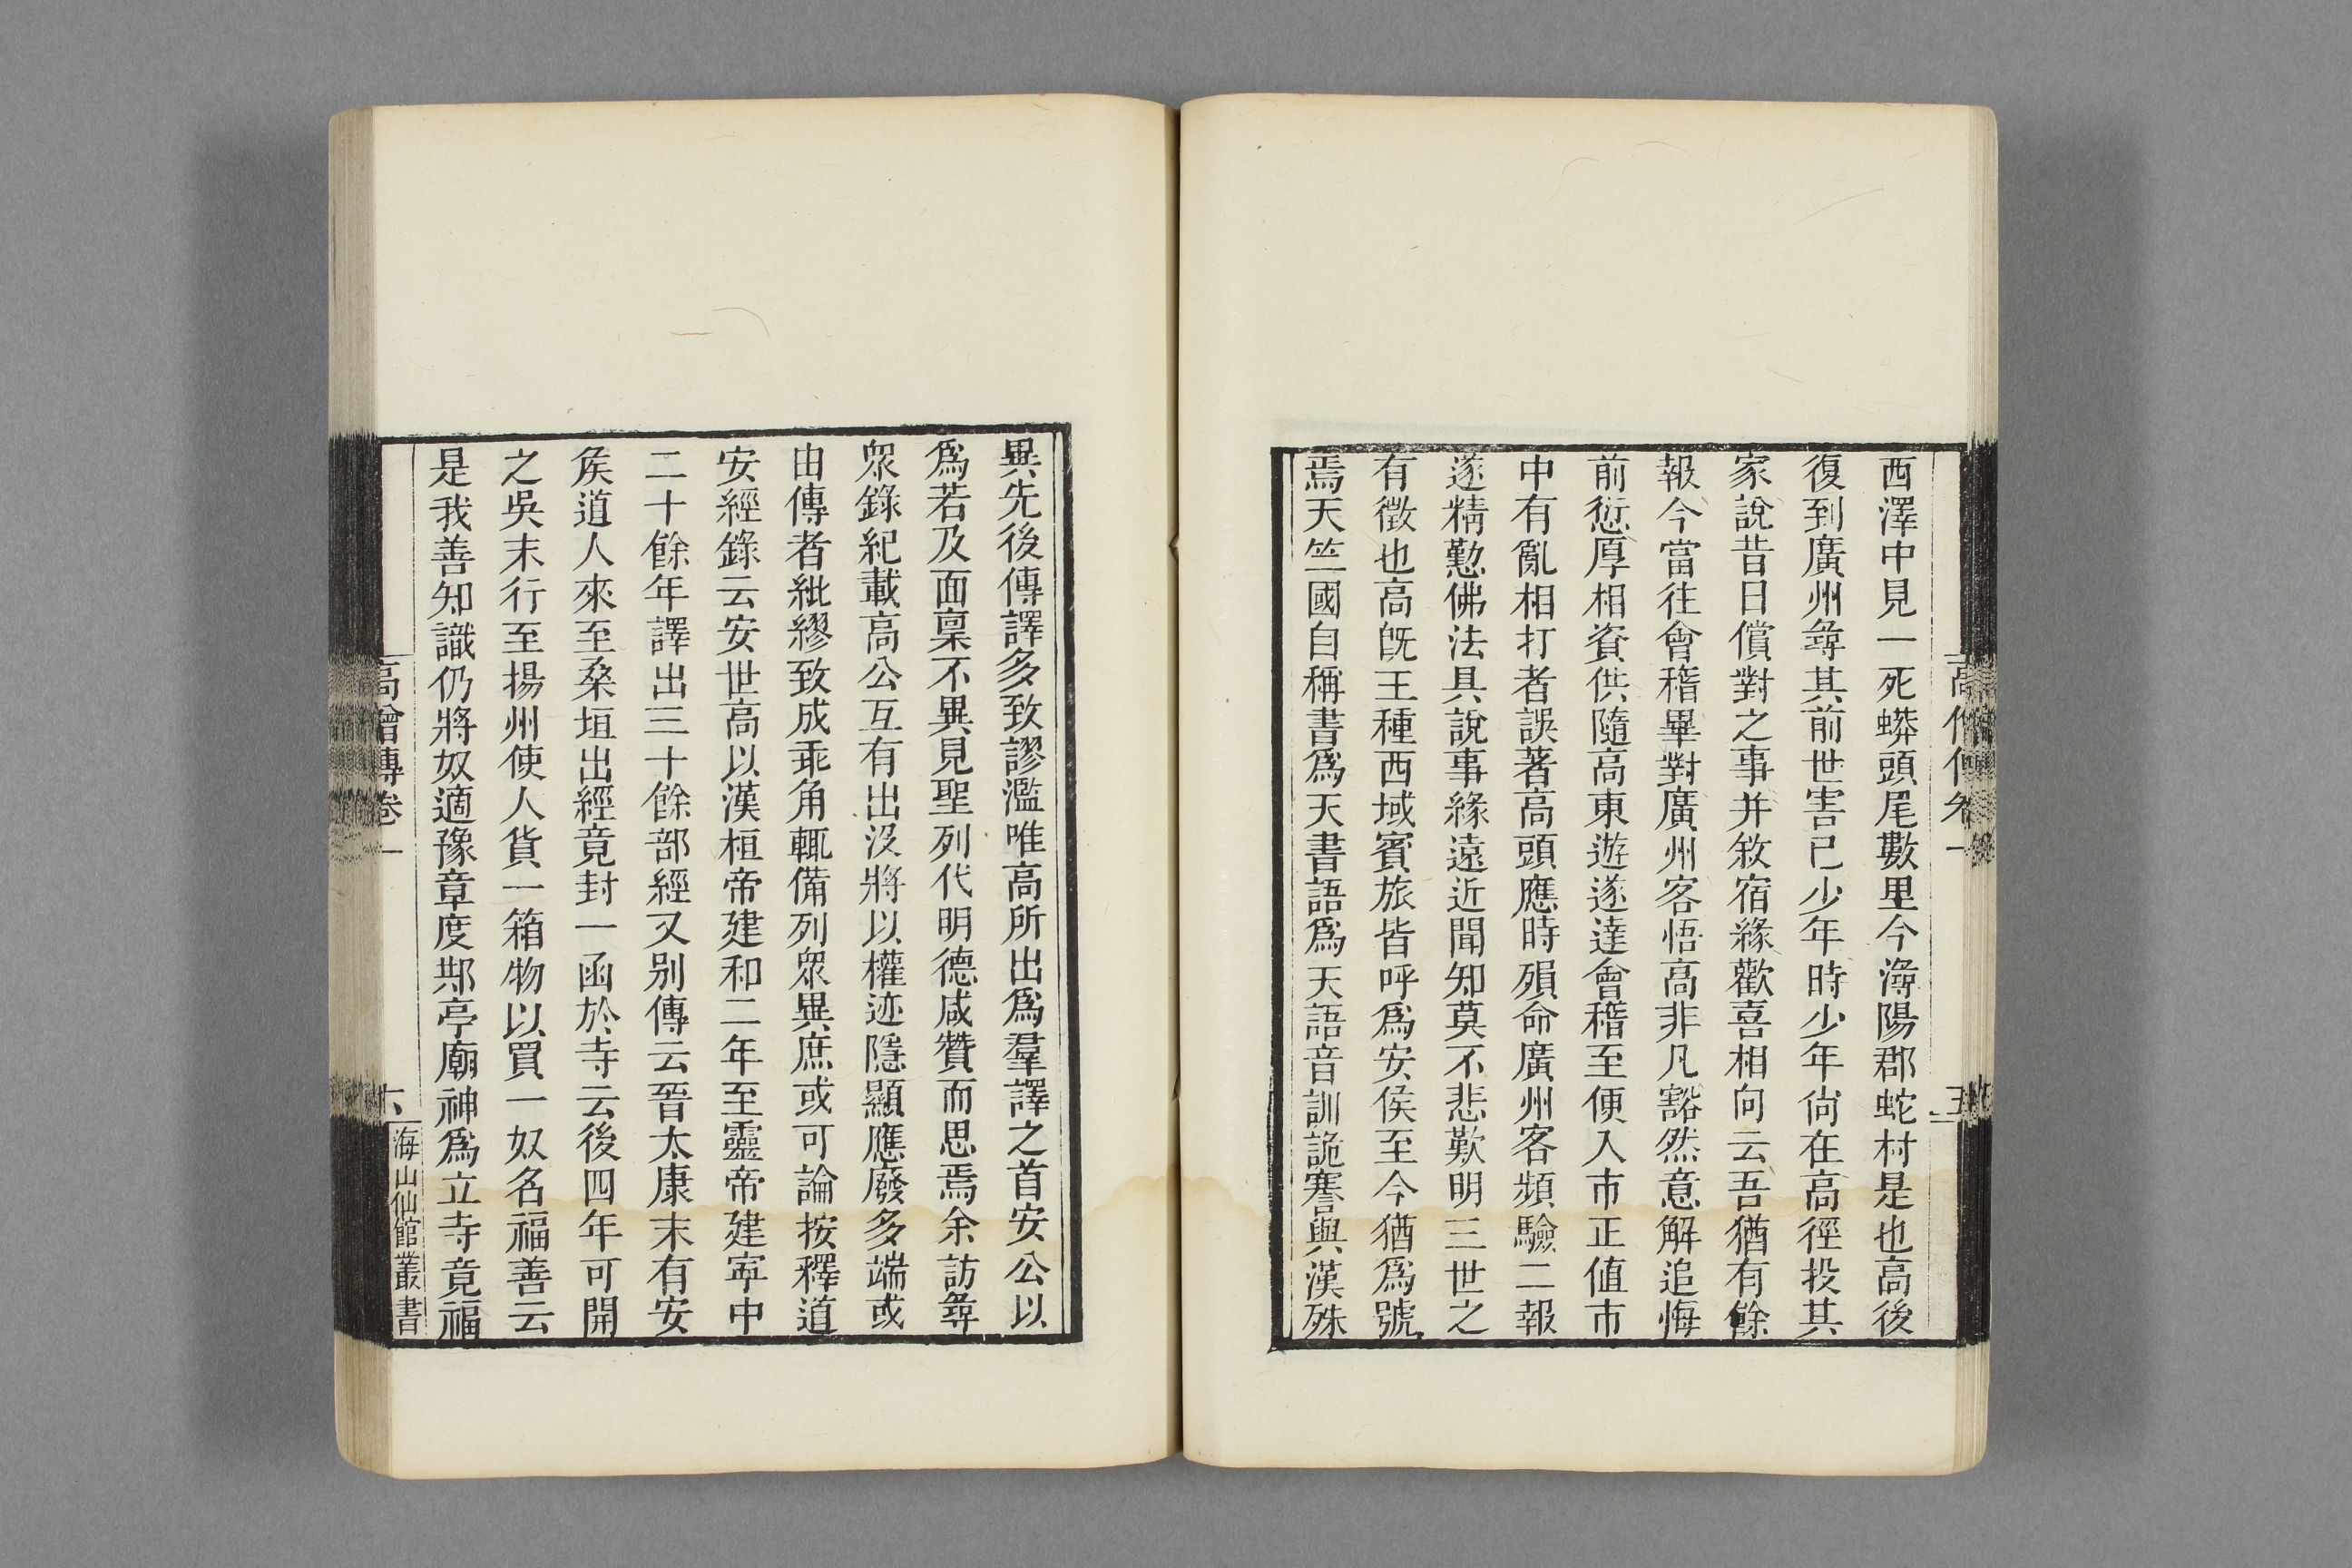 西澤中見一死蟒頭尾數里今潯陽郡蛇村是也高後
復到廣州尋其前世害已少年時少年尚在高徑投其
家說昔日償對之事并敘宿緣歡喜相向云吾猶有餘
報今當往會稽畢對廣州客悟高非凡豁然意解追悔
前愆厚相資供隨高東遊遂達會稽至便入市正值市
中有亂相打者誤著高頭應時殞命廣州客頻驗二報
遂精懃佛法具說事緣遠近聞知莫不悲歎明三世之
有徵也高旣王種西域賓旅皆呼爲安侯至今猶爲號
焉天竺國自稱書爲天書語爲天語音訓詭蹇與漢殊
異先後傳譯多致謬濫唯高所出爲羣譯之首安公以
爲若及面稟不異見聖列代明德咸贊而思焉余訪尋
衆錄紀載高公互有出沒將以權迹隱顯應廢多端或
由傳者紕繆致成乖角輒備列衆異庶或可論按釋道
安經錄云安世高以漢桓帝建和二年至靈帝建寧中
二十餘年譯出三十餘部經又別傳云晉太康末有安
侯道人來至桑垣出經竟封一函於寺云後四年可開
之吳末行至揚州使人貨一箱物以買一奴名福善云
是我善知識仍將奴適豫章度䢼亭廟神爲立寺竟福
高僧傳卷一
六
海山仙館叢書